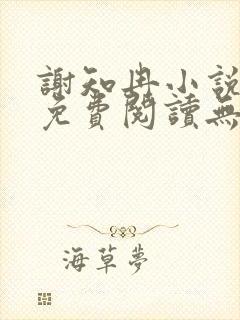 謝知冉小說
免費閱讀無
海草夢